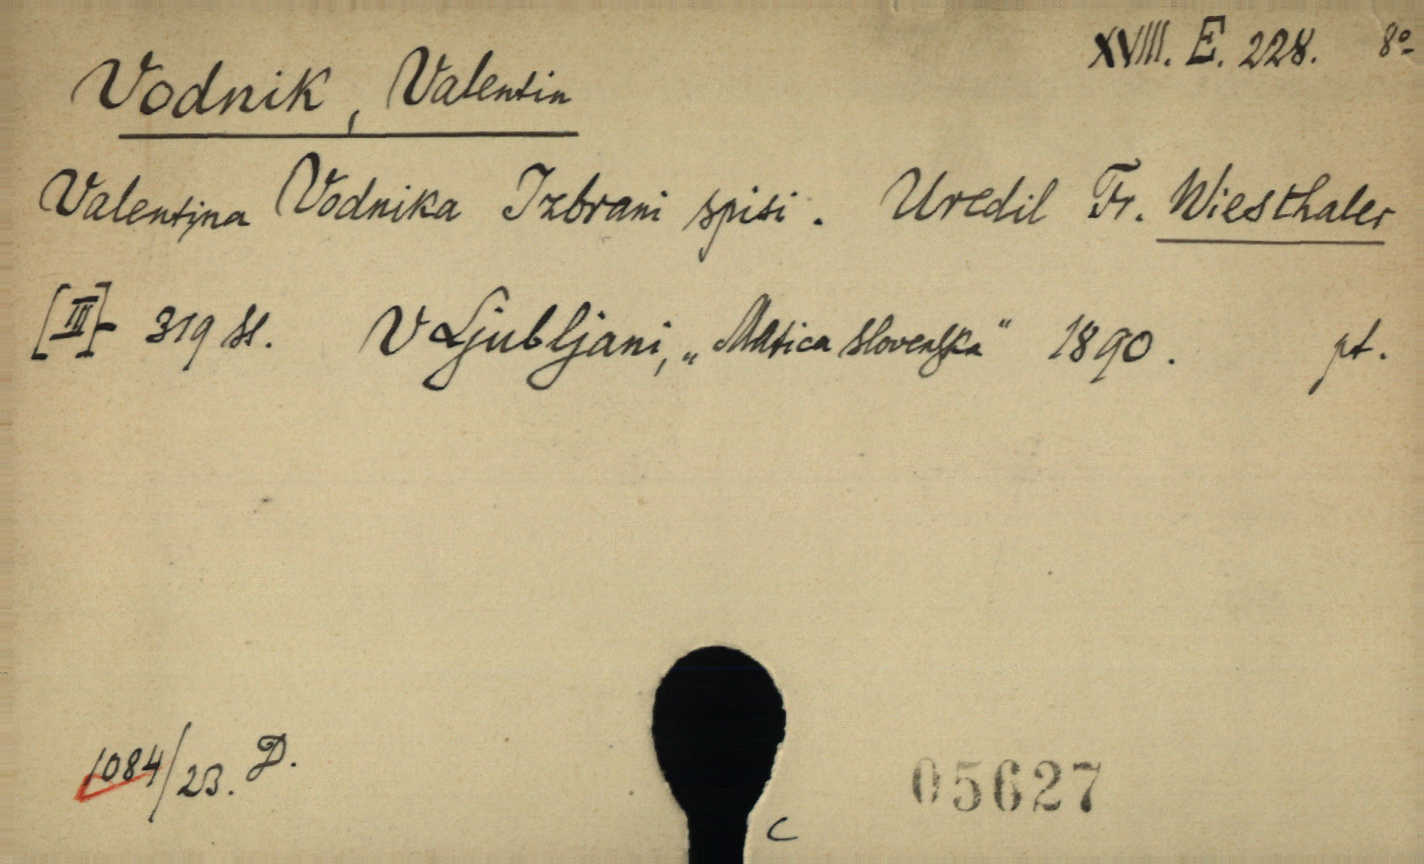 XVIII. E. 228. 8º
Vodnik, Valentin
Valentina Vodnika Izbrani spisi. Uredil Fr. Wiesthaler
[III]- 319 ss. V Ljubljani, „Matica slovenska“ 1890. pt.
1084/23. D.
05627
C